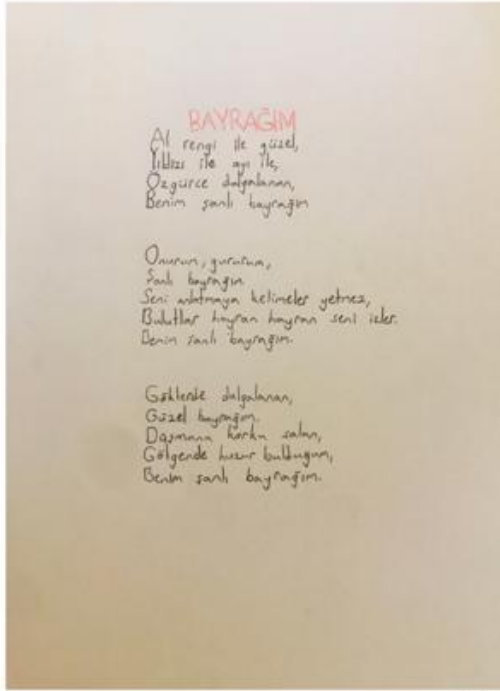 BAYRAĞIM
Al rengi ile güzel,
Yıldızı ile ayı ile,
Özgürce dalgalanan,
Benim şanlı bayrağım
Onurum, gururum,
Şanlı bayrağım
Seni anlatmaya kelimeler yetmez,
Bulutlar hayran hayran seni izler.
Benim şanlı bayrağım.
Göklerde dalgalanan,
Güzel bayrağım.
Düşmana korku salan,
Gölgende huzur bulduğum,
Benim şanlı bayrağım.